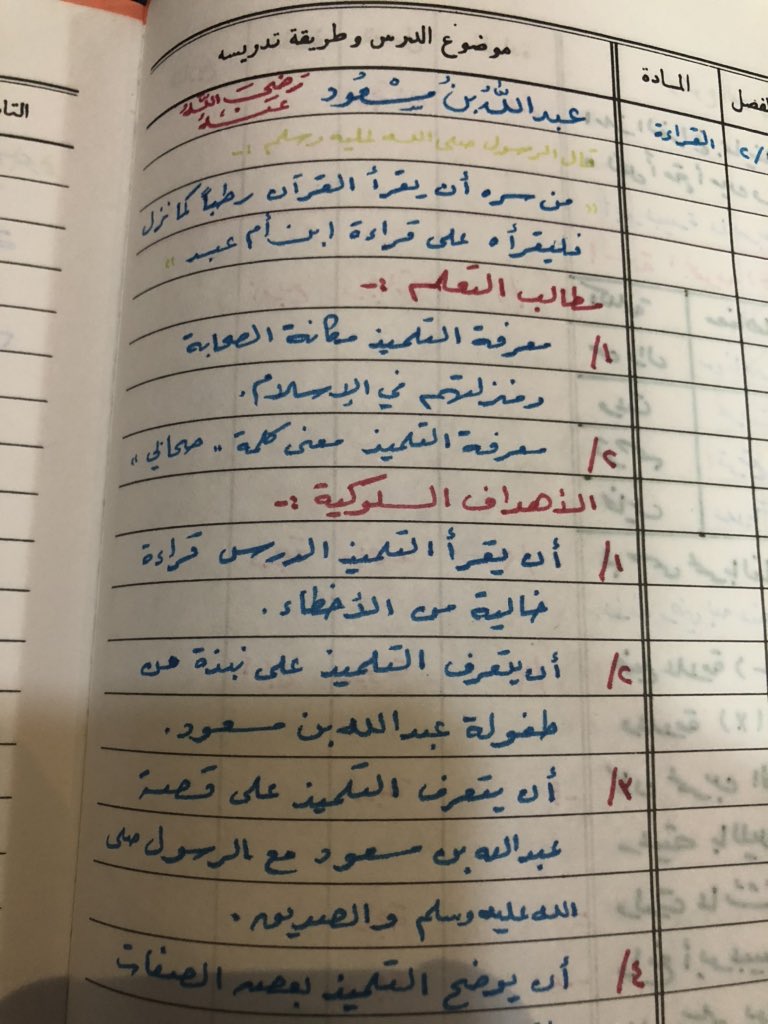 الفصل | المادة | موضوع الدرس وطريقة تدريسه
القراءة | عبد اللَّهُ بنُ مسْعُود رَضِيَ اللَّهُ عَنْهُ
قال الرسول صلى الله عليه وسلم :-
" من سره أن يقرأ القرآن رطباً كما نزل
فليقرأه على قراءة ابن أم عبد "
مطالب التعلم :-
١/ معرفة التلميذ مكانة الصحابة
ومنزلتهم في الإسلام.
٢/ معرفة التلميذ معنى كلمة " صحابي "
الأهداف السلوكية :-
١/ أن يقرأ التلميذ الدرس قراءة
خالية من الأخطاء.
٢/ أن يتعرف التلميذ على نبذة عن
طفولة عبد الله بن مسعود.
٣/ أن يتعرف التلميذ على قصة
عبد الله بن مسعود مع الرسول صلى
الله عليه وسلم والصديق.
٤/ أن يوضح التلميذ بعض الصفات